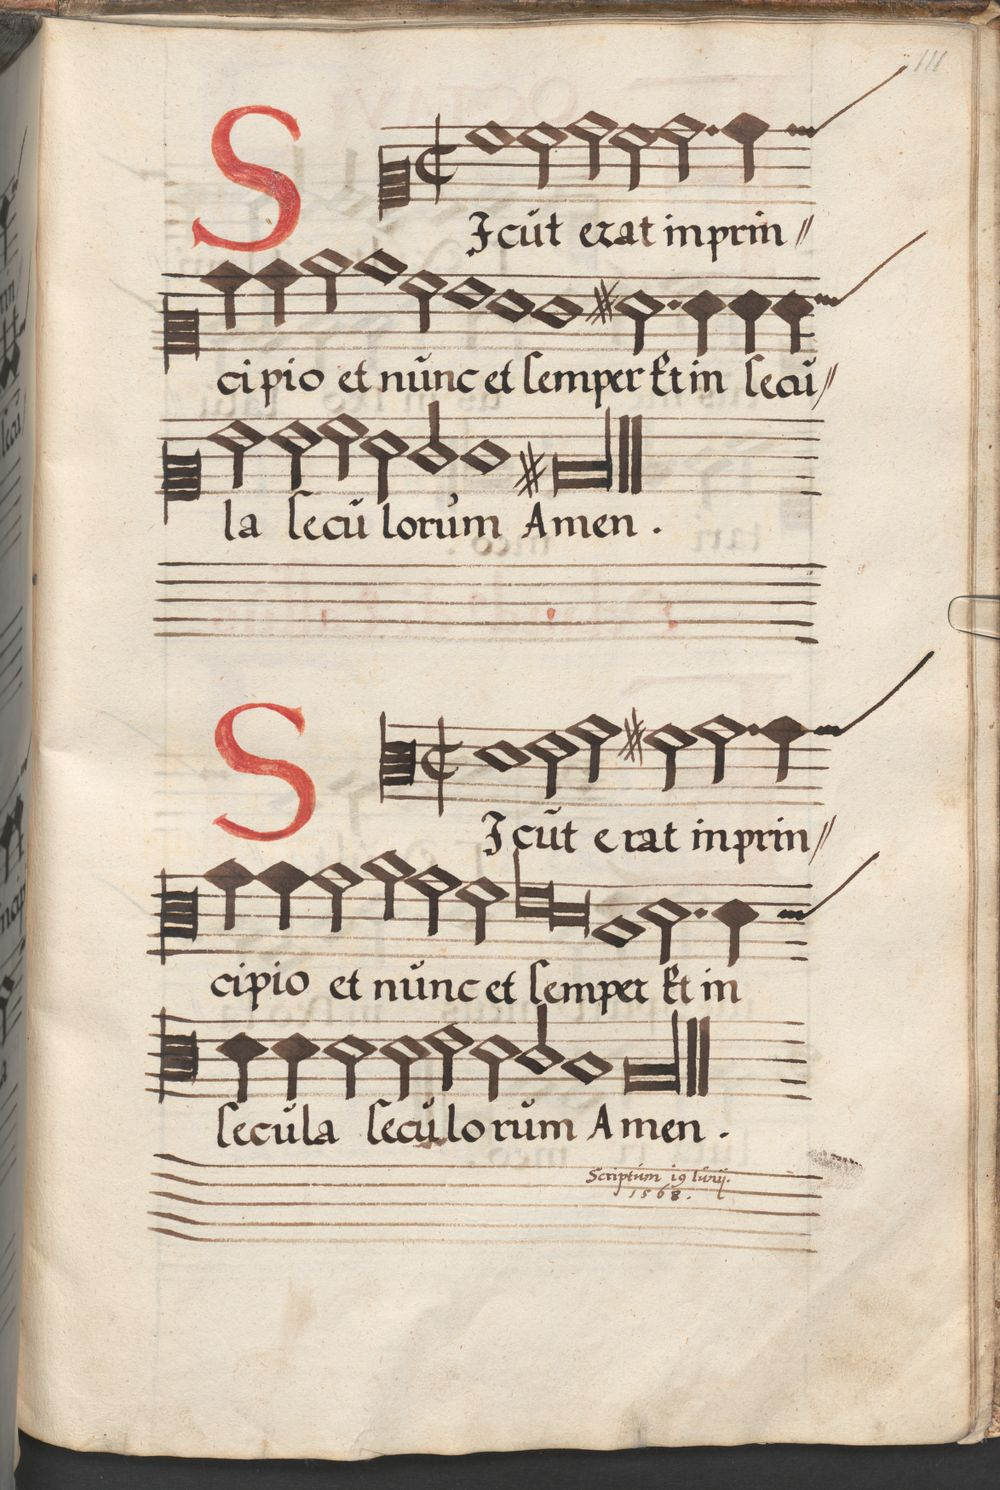 111
SJcũt erat in prin//
cipio et nũnc et semper Et in secũ//
la secũ lorũm Amen.
SJcũt erat in prin//
cipio et nũnc et semper Et in
secũla secũlorũm Amen.
Scriptũm 19 Iũnij.
1568.